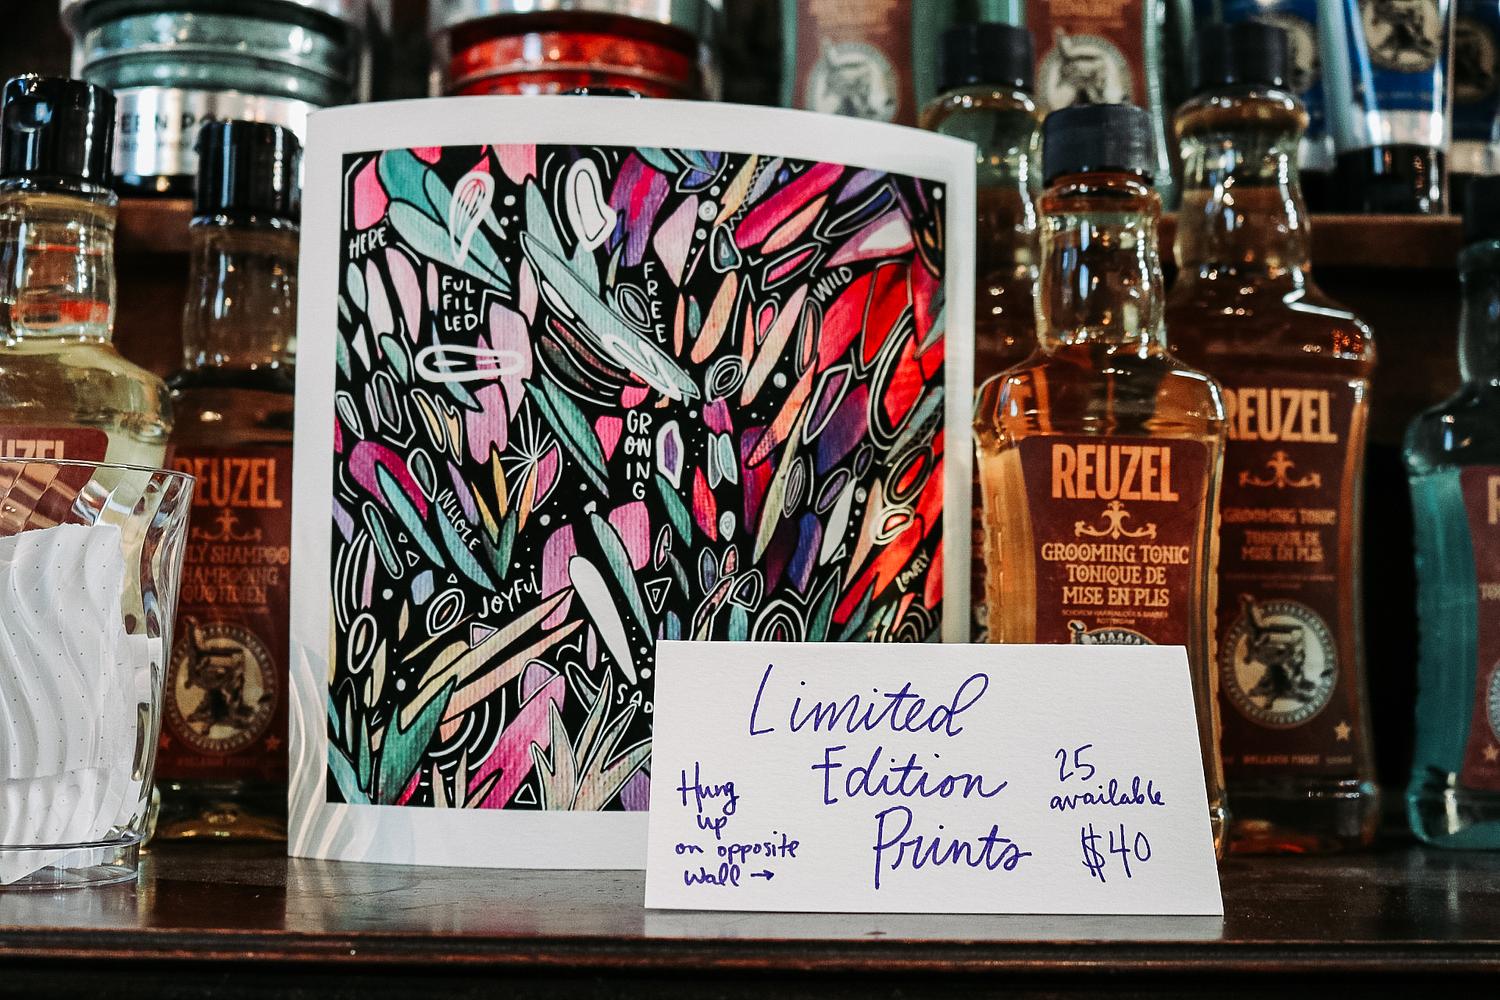 HERE
FUL
FIL
LED
FREE
WILD
GR
OW
IN
G
WHOLE
JOYFUL
LOVELY
Limited
Edition
Prints
Hung
up
on opposite
wall →
25
available
$40
REUZEL
GROOMING TONIC
TONIQUE DE
MISE EN PLIS
REUZEL
GROOMING TONIC
TONIQUE DE
MISE EN PLIS
REUZEL
LY SHAMPOO
HAMPOOING
QUOTIDIEN